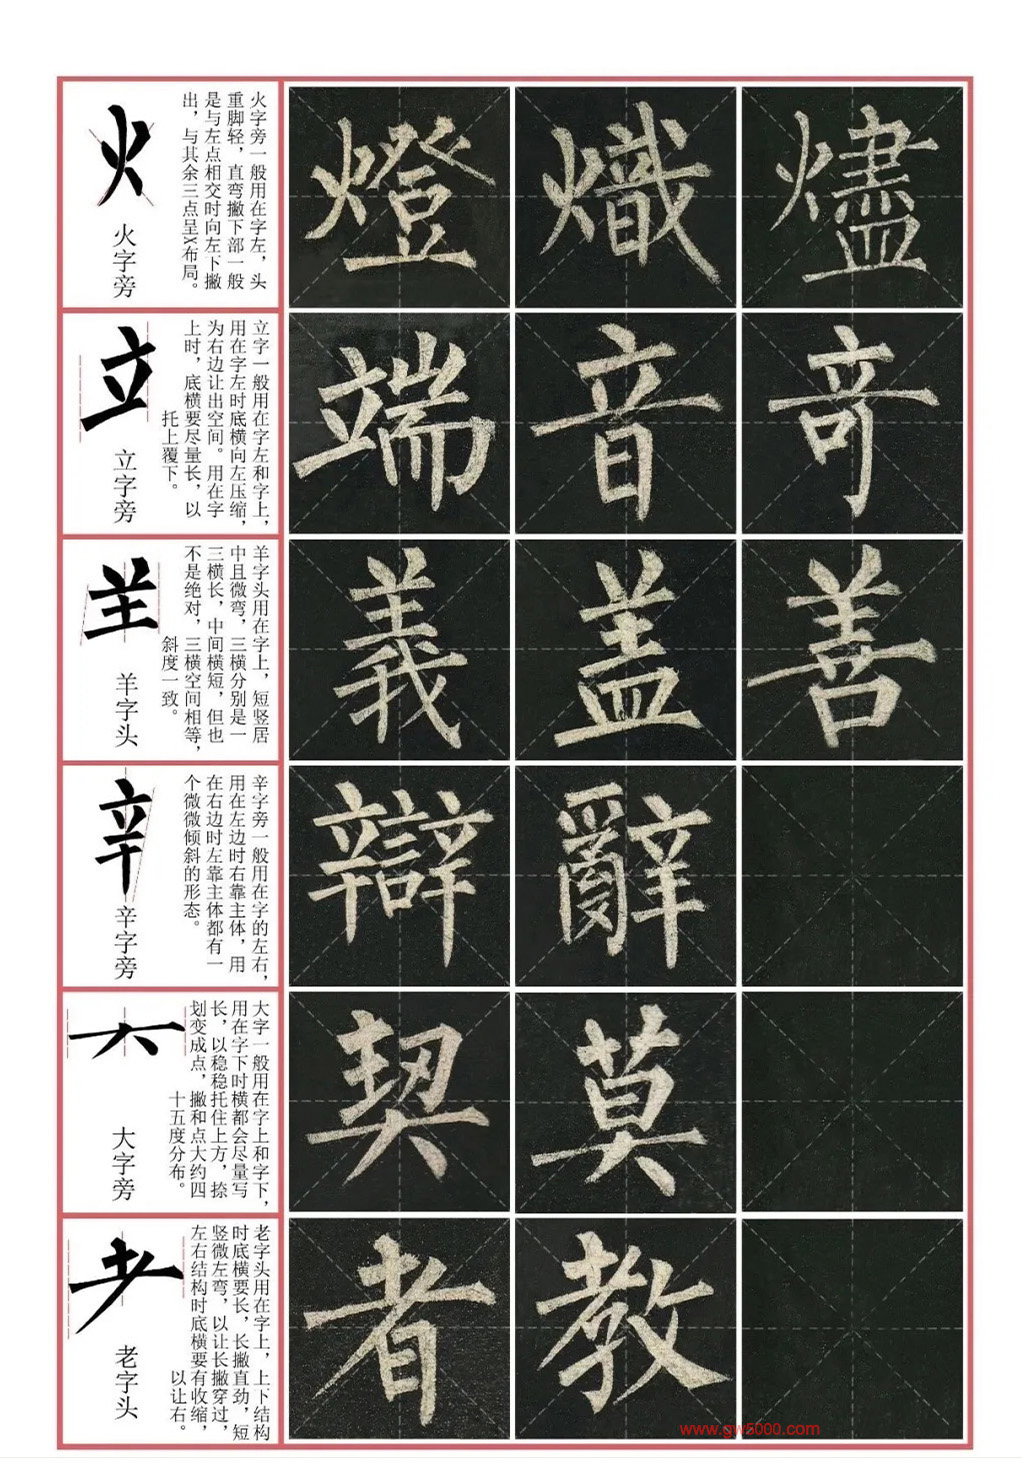 火
火字旁
火字旁一般用在字左，头
重脚轻，直弯撇下部一般
是与左点相交时向左下撇
出，与其余三点呈X布局。
燈 熾 燼
立
立字旁
立字一般用在字左和字上，
用在字左时底横向左压缩，
为右边让出空间。用在字
上时，底横要尽量长，以
托上覆下。
端 音 竒
羊字头
羊字头用在字上，短竖居
中且微弯，三横分别是一
三横长，中间横短，但也
不是绝对，三横空间相等，
斜度一致。
義 盖 善
辛
辛字旁
辛字旁一般用在字的左右，
用在左边时右靠主体，用
在右边时左靠主体都有一
个微微倾斜的形态。
辯 辭
大字旁
大字一般用在字上和字下，
用在字下时横都会尽量写
长，以稳稳托住上方，捺
划变成点，撇和点大约四
十五度分布。
契 莫
老字头
老字头用在字上，上下结构
时底横要长，长撇直劲，短
竖微左弯，以让长撇穿过，
左右结构时底横要有收缩，
以让右。
者 教
www.gw5000.com